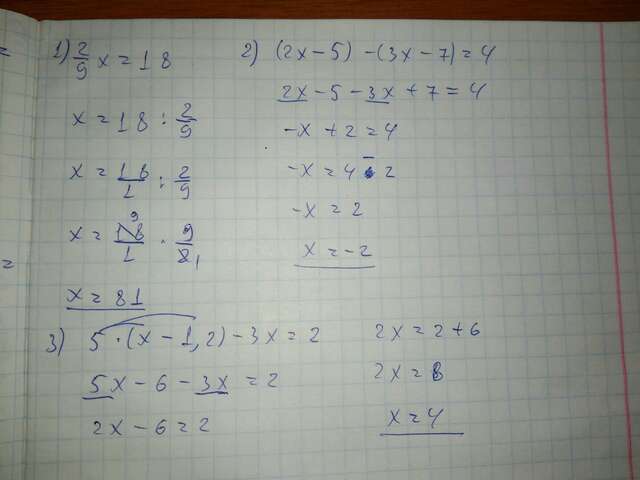 1) 2/9 x = 18
x = 18 : 2/9
x = 18/1 : 2/9
x = 18/1 · 9/2
x = 81
2) (2x – 5) – (3x – 7) = 4
2x – 5 – 3x + 7 = 4
–x + 2 = 4
–x = 4 – 2
–x = 2
x = –2
3) 5 · (x – 1,2) – 3x = 2
5x – 6 – 3x = 2
2x – 6 = 2
2x = 2 + 6
2x = 8
x = 4